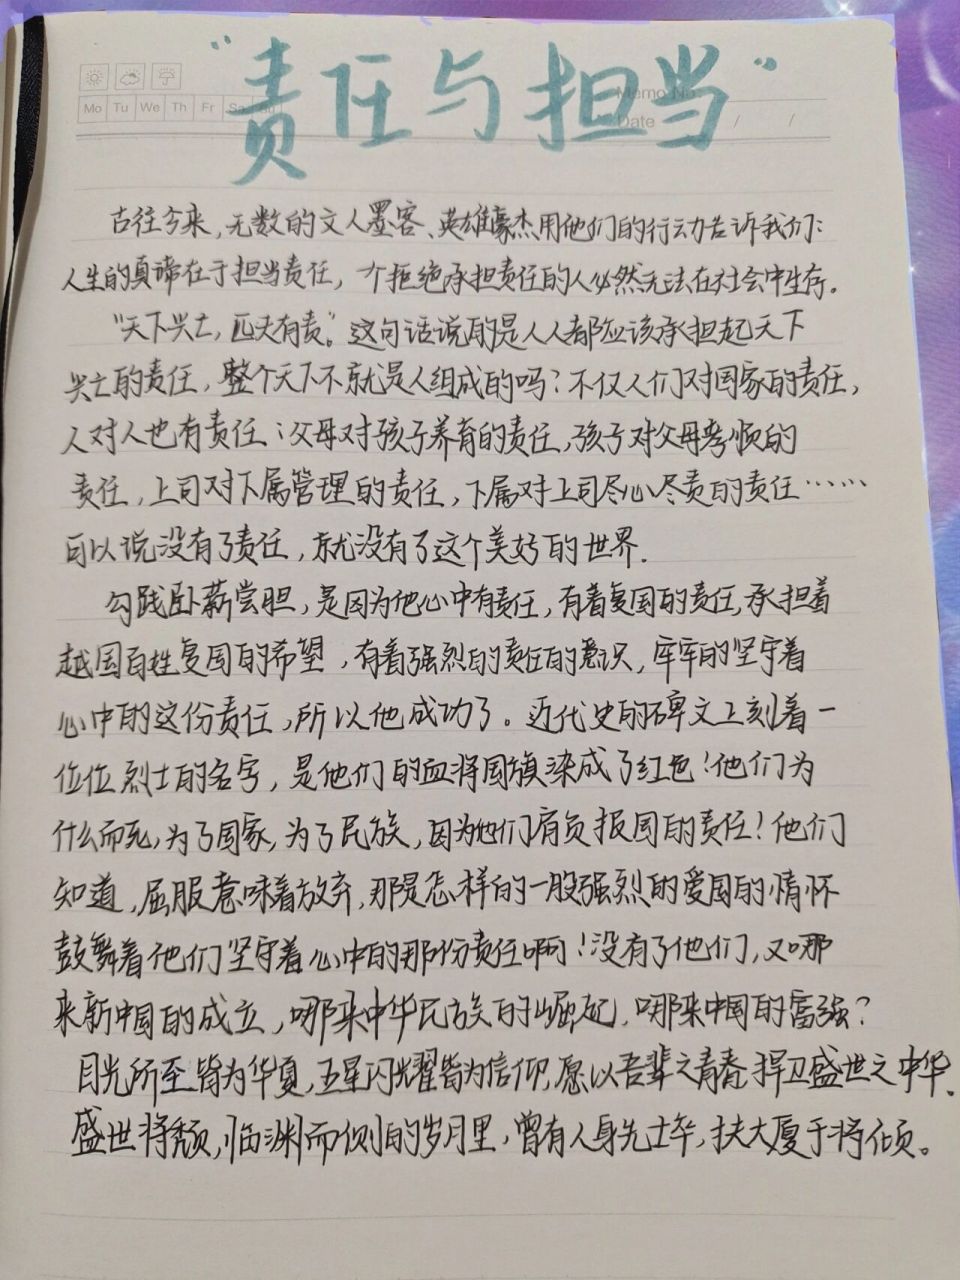 “责任与担当”
Memo No.
Mo Tu We Th Fr Sa Su
Date / /
古往今来，无数的文人墨客、英雄豪杰用他们的行动告诉我们：
人生的真谛在于担当责任，一个拒绝承担责任的人必然无法在社会中生存。
“天下兴亡，匹夫有责。”这句话说的是人人都应该承担起天下
兴亡的责任，整个天下不就是人组成的吗？不仅人们对国家的责任，
人对人也有责任：父母对孩子养育的责任，孩子对父母孝顺的
责任，上司对下属管理的责任，下属对上司尽心尽责的责任……
可以说没有了责任，就没有了这个美好的世界.
勾践卧薪尝胆，是因为他心中有责任，有着复国的责任，承担着
越国百姓复国的希望，有着强烈的责任的意识，牢牢的坚守着
心中的这份责任，所以他成功了。近代史的碑文上刻着一
位位烈士的名字，是他们的血将国旗染成了红色！他们为
什么而死，为了国家，为了民族，因为他们肩负报国的责任！他们
知道，屈服意味着放弃，那是怎样的一股强烈的爱国的情怀
鼓舞着他们坚守着心中的那份责任啊！没有了他们，又哪
来新中国的成立，哪来中华民族的崛起，哪来中国的富强？
目光所至皆为华夏，五星闪耀皆为信仰，愿以吾辈之青春捍卫盛世之中华.
盛世将颓，临渊而侧的岁月里，曾有人身先士卒，扶大厦于将倾。